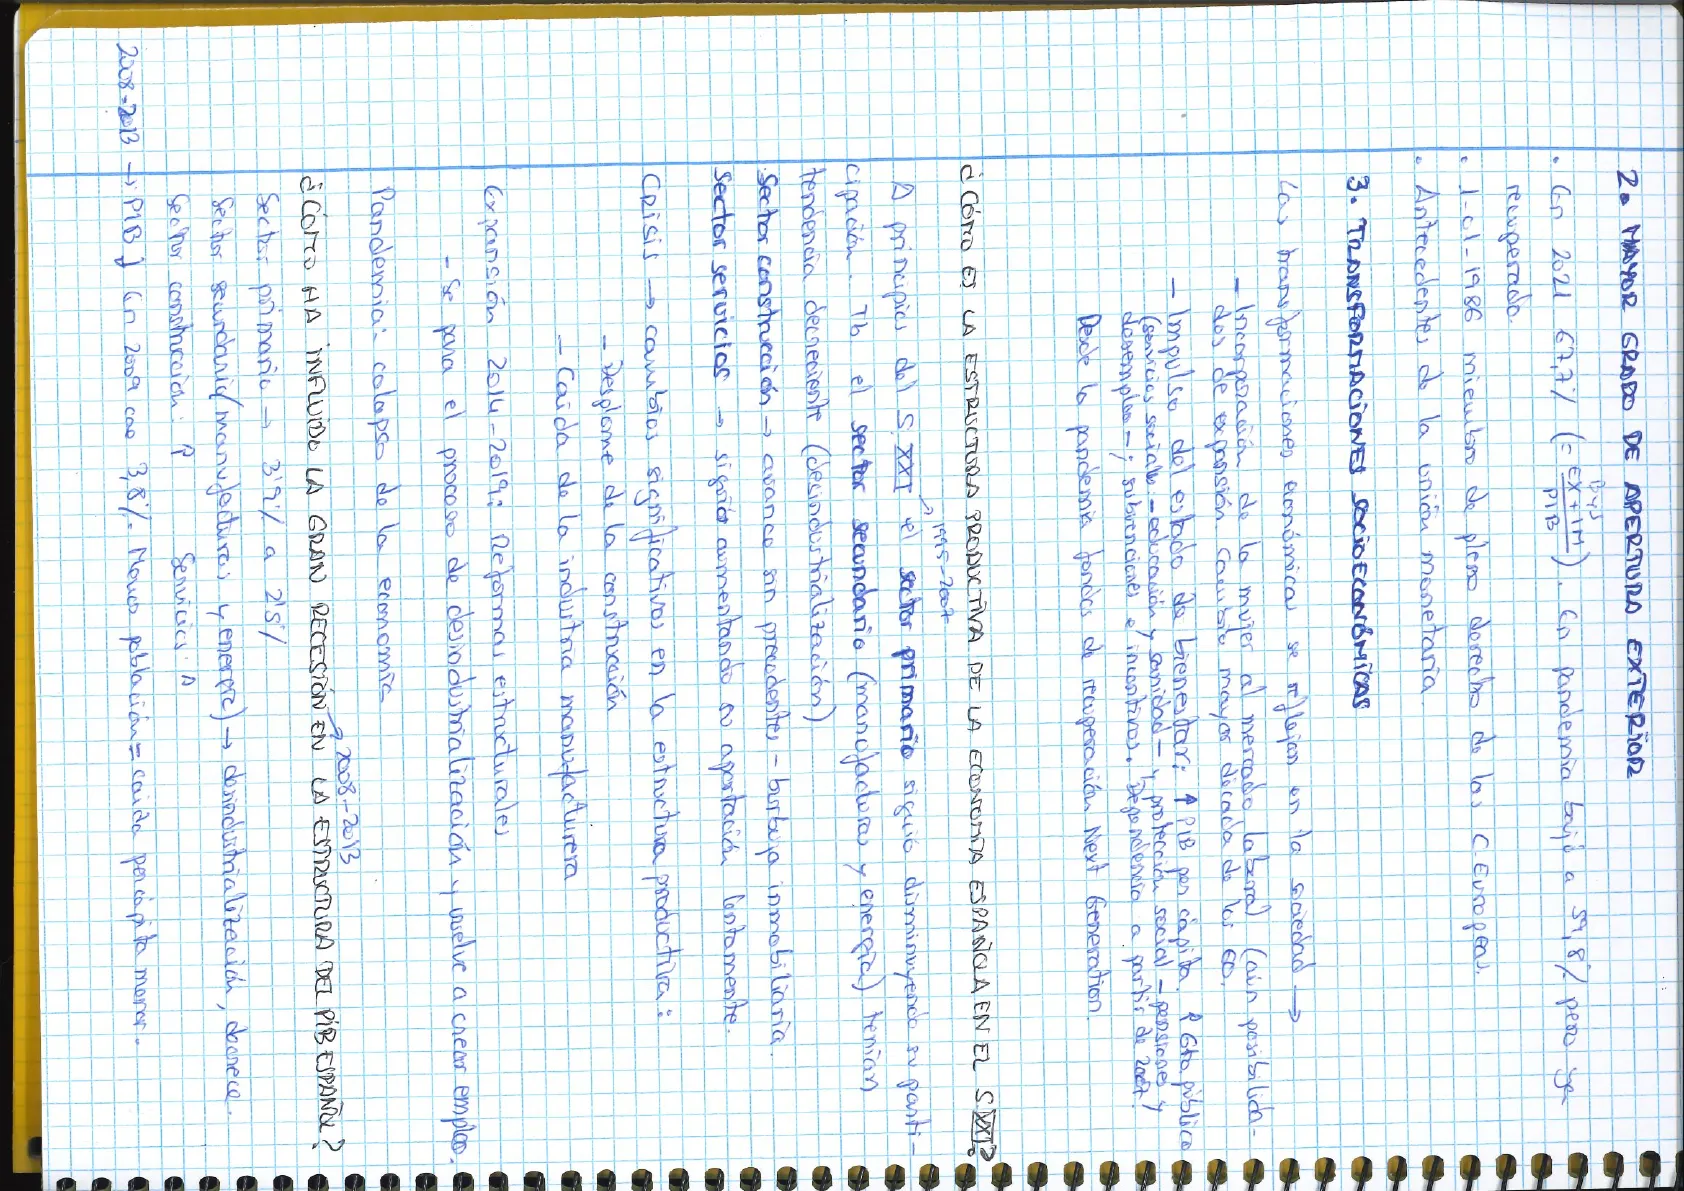 2. MAYOR GRADO DE APERTURA EXTERIOR
· En 2021 67,7% (= EX + IM / PIB). En pandemia bajó a 59,8% pero se
ByS
recuperado.
· 1-01-1986 miembro de pleno derecho de las CEuropeas.
· Antecedentes de la unión monetaria.
3. TRANSFORMACIONES SOCIOECONÓMICAS
Las transformaciones económicas se reflejan en la sociedad →
- Incorporación de la mujer al mercado laboral (aún posibilida-
des de expansión. Cambio mayor década de los 80s.
- Impulso del estado de bienestar: ↑ PIB per cápita. ↑ Gto público
(servicios sociales - educación y sanidad - y protección social - pensiones y
desempleo -; subvenciones e incentivos. Dependencia a partir de 2007.
Desde la pandemia fondos de recuperación Next Generation.
¿CÓMO ES LA ESTRUCTURA PRODUCTIVA DE LA ECONOMÍA ESPAÑOLA EN EL S XXI?
→ 1995-2007
A principios del S. XXI el sector primario siguió disminuyendo su parti-
cipación. Tb el sector secundario (manufacturas y energía) tenían
tendencia decreciente (desindustrialización)
Sector construcción → avance sin precedentes - burbuja inmobiliaria.
Sector servicios → siguió aumentando su aportación lentamente.
Crisis → cambios significativos en la estructura productiva:
- Desplome de la construcción
- Caída de la industria manufacturera
Expansión 2014-2019: Reformas estructurales
- Se para el proceso de desindustrialización y vuelve a crear empleo.
Pandemia: colapso de la economía
→ 2008-2013
¿CÓMO HA INFLUIDO LA GRAN RECESIÓN EN LA ESTRUCTURA DEL PIB ESPAÑOL?
Sector primario → 3'9% a 2'5%
Sector secundario (manufacturas y energía) → desindustrialización, decrece.
Sector construcción: Servicios:
2008-2013 → PIB ↓ En 2009 cae 3,8%. Menos población = caída per cápita menor.